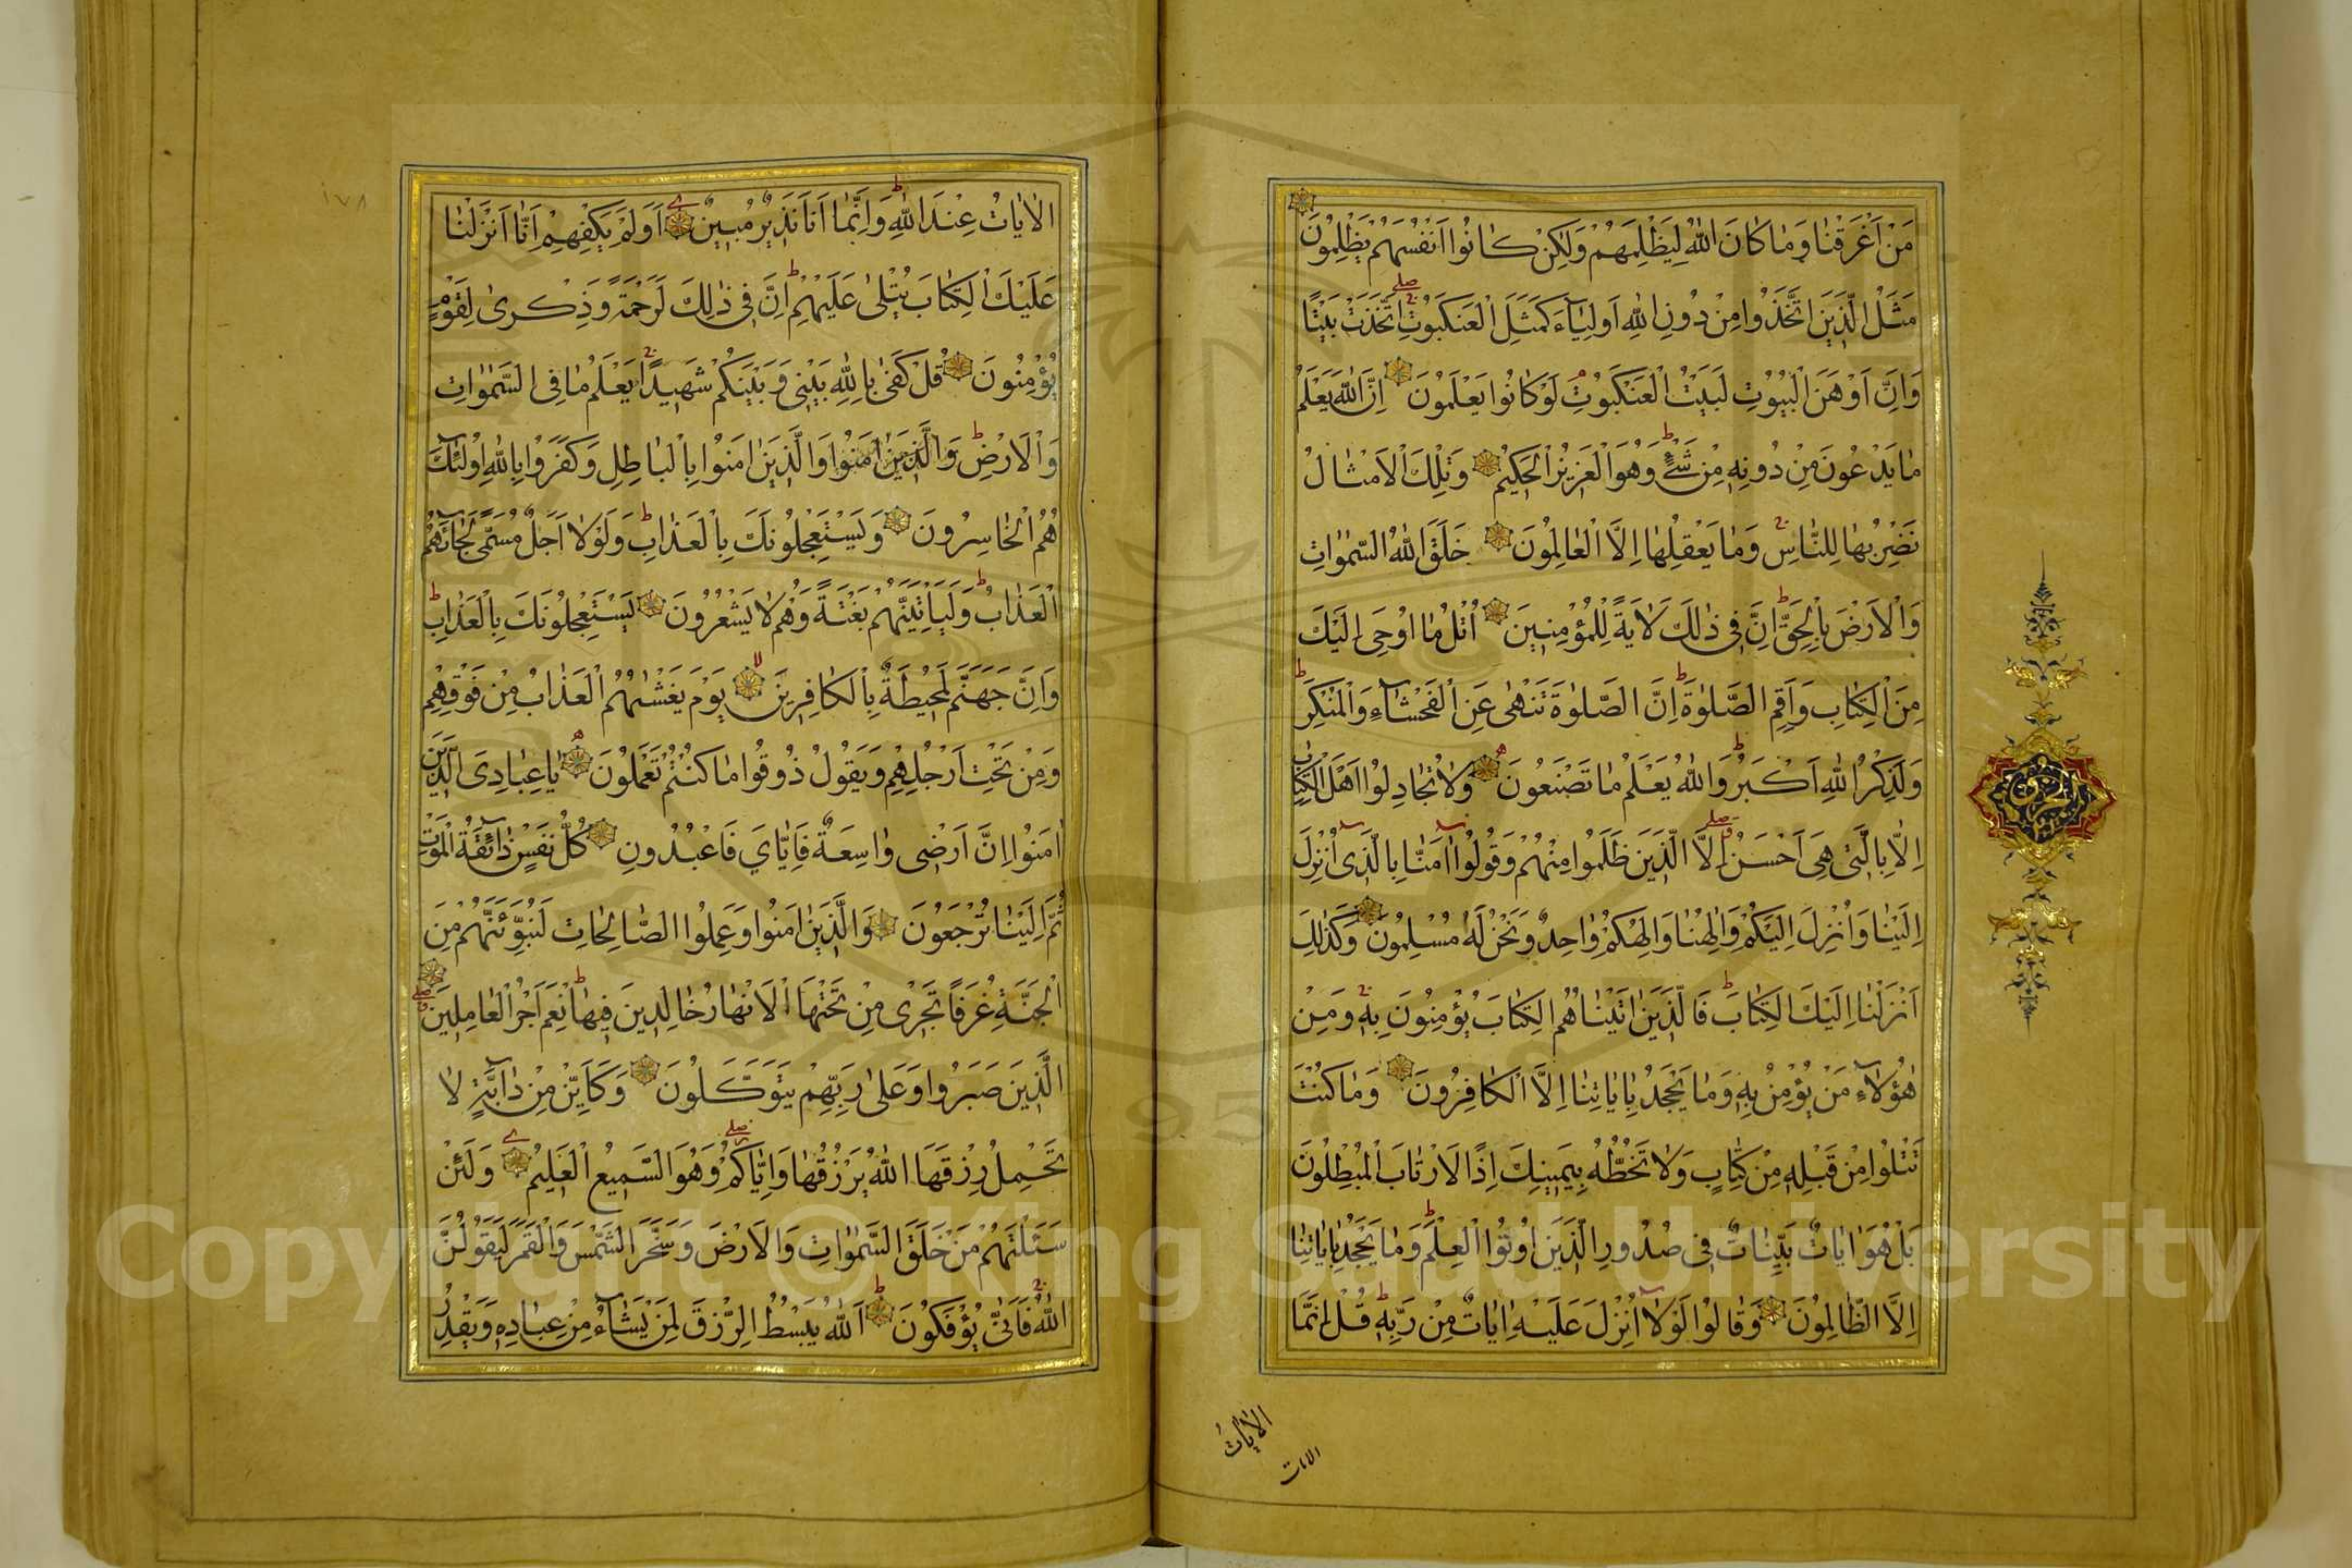 مَنْ اَغْرَقْنَا وَمَا كَانَ اللّٰهُ لِيَظْلِمَهُمْ وَلٰكِنْ كَانُوا اَنْفُسَهُمْ يَظْلِمُونَ
مَثَلُ الَّذِينَ اتَّخَذُوا مِنْ دُونِ اللّٰهِ اَوْلِيَاءَ كَمَثَلِ الْعَنْكَبُوتِ اِتَّخَذَتْ بَيْتًا
وَاِنَّ اَوْهَنَ الْبُيُوتِ لَبَيْتُ الْعَنْكَبُوتِ لَوْ كَانُوا يَعْلَمُونَ اِنَّ اللّٰهَ يَعْلَمُ
مَا يَدْعُونَ مِنْ دُونِهِ مِنْ شَيْءٍ وَهُوَ الْعَزِيزُ الْحَكِيمُ وَتِلْكَ الْاَمْثَالُ
نَضْرِبُهَا لِلنَّاسِ وَمَا يَعْقِلُهَا اِلَّا الْعَالِمُونَ خَلَقَ اللّٰهُ السَّمٰوَاتِ
وَالْاَرْضَ بِالْحَقِّ اِنَّ فِي ذٰلِكَ لَاٰيَةً لِلْمُؤْمِنِينَ اُتْلُ مَا اُوحِيَ اِلَيْكَ
مِنَ الْكِتَابِ وَاَقِمِ الصَّلٰوةَ اِنَّ الصَّلٰوةَ تَنْهٰى عَنِ الْفَحْشَاءِ وَالْمُنْكَرِ
وَلَذِكْرُ اللّٰهِ اَكْبَرُ وَاللّٰهُ يَعْلَمُ مَا تَصْنَعُونَ وَلَا تُجَادِلُوا اَهْلَ الْكِتَابِ
اِلَّا بِالَّتِي هِيَ اَحْسَنُ اِلَّا الَّذِينَ ظَلَمُوا مِنْهُمْ وَقُولُوا اٰمَنَّا بِالَّذِي اُنْزِلَ
اِلَيْنَا وَاُنْزِلَ اِلَيْكُمْ وَاِلٰهُنَا وَاِلٰهُكُمْ وَاحِدٌ وَنَحْنُ لَهُ مُسْلِمُونَ وَكَذٰلِكَ
اَنْزَلْنَا اِلَيْكَ الْكِتَابَ فَالَّذِينَ اٰتَيْنَاهُمُ الْكِتَابَ يُؤْمِنُونَ بِهِ وَمِنْ
هٰؤُلَاءِ مَنْ يُؤْمِنُ بِهِ وَمَا يَجْحَدُ بِاٰيَاتِنَا اِلَّا الْكَافِرُونَ وَمَا كُنْتَ
تَتْلُوا مِنْ قَبْلِهِ مِنْ كِتَابٍ وَلَا تَخُطُّهُ بِيَمِينِكَ اِذًا لَارْتَابَ الْمُبْطِلُونَ
بَلْ هُوَ اٰيَاتٌ بَيِّنَاتٌ فِي صُدُورِ الَّذِينَ اُوتُوا الْعِلْمَ وَمَا يَجْحَدُ بِاٰيَاتِنَا
اِلَّا الظَّالِمُونَ وَقَالُوا لَوْلَا اُنْزِلَ عَلَيْهِ اٰيَاتٌ مِنْ رَبِّهِ قُلْ اِنَّمَا
الاٰيَاتُ
الايات
١٧٨
الْاٰيَاتُ عِنْدَ اللّٰهِ وَاِنَّمَا اَنَا نَذِيرٌ مُبِينٌ اَوَلَمْ يَكْفِهِمْ اَنَّا اَنْزَلْنَا
عَلَيْكَ الْكِتَابَ يُتْلٰى عَلَيْهِمْ اِنَّ فِي ذٰلِكَ لَرَحْمَةً وَذِكْرٰى لِقَوْمٍ
يُؤْمِنُونَ قُلْ كَفٰى بِاللّٰهِ بَيْنِي وَبَيْنَكُمْ شَهِيدًا يَعْلَمُ مَا فِي السَّمٰوَاتِ
وَالْاَرْضِ وَالَّذِينَ اٰمَنُوا وَالَّذِينَ اٰمَنُوا بِالْبَاطِلِ وَكَفَرُوا بِاللّٰهِ اُولٰئِكَ
هُمُ الْخَاسِرُونَ وَيَسْتَعْجِلُونَكَ بِالْعَذَابِ وَلَوْلَا اَجَلٌ مُسَمًّى لَجَاءَهُمُ
الْعَذَابُ وَلَيَأْتِيَنَّهُمْ بَغْتَةً وَهُمْ لَا يَشْعُرُونَ يَسْتَعْجِلُونَكَ بِالْعَذَابِ
وَاِنَّ جَهَنَّمَ لَمُحِيطَةٌ بِالْكَافِرِينَ يَوْمَ يَغْشٰيهُمُ الْعَذَابُ مِنْ فَوْقِهِمْ
وَمِنْ تَحْتِ اَرْجُلِهِمْ وَيَقُولُ ذُوقُوا مَا كُنْتُمْ تَعْمَلُونَ يَا عِبَادِيَ الَّذِينَ
اٰمَنُوا اِنَّ اَرْضِي وَاسِعَةٌ فَاِيَّايَ فَاعْبُدُونِ كُلُّ نَفْسٍ ذَائِقَةُ الْمَوْتِ
ثُمَّ اِلَيْنَا تُرْجَعُونَ وَالَّذِينَ اٰمَنُوا وَعَمِلُوا الصَّالِحَاتِ لَنُبَوِّئَنَّهُمْ مِنَ
الْجَنَّةِ غُرَفًا تَجْرِي مِنْ تَحْتِهَا الْاَنْهَارُ خَالِدِينَ فِيهَا نِعْمَ اَجْرُ الْعَامِلِينَ
الَّذِينَ صَبَرُوا وَعَلٰى رَبِّهِمْ يَتَوَكَّلُونَ وَكَاَيِّنْ مِنْ دَابَّةٍ لَا
تَحْمِلُ رِزْقَهَا اللّٰهُ يَرْزُقُهَا وَاِيَّاكُمْ وَهُوَ السَّمِيعُ الْعَلِيمُ وَلَئِنْ
سَئَلْتَهُمْ مَنْ خَلَقَ السَّمٰوَاتِ وَالْاَرْضَ وَسَخَّرَ الشَّمْسَ وَالْقَمَرَ لَيَقُولُنَّ
اللّٰهُ فَاَنّٰى يُؤْفَكُونَ اَللّٰهُ يَبْسُطُ الرِّزْقَ لِمَنْ يَشَاءُ مِنْ عِبَادِهِ وَيَقْدِرُ
Copyright © King Saud University
1957